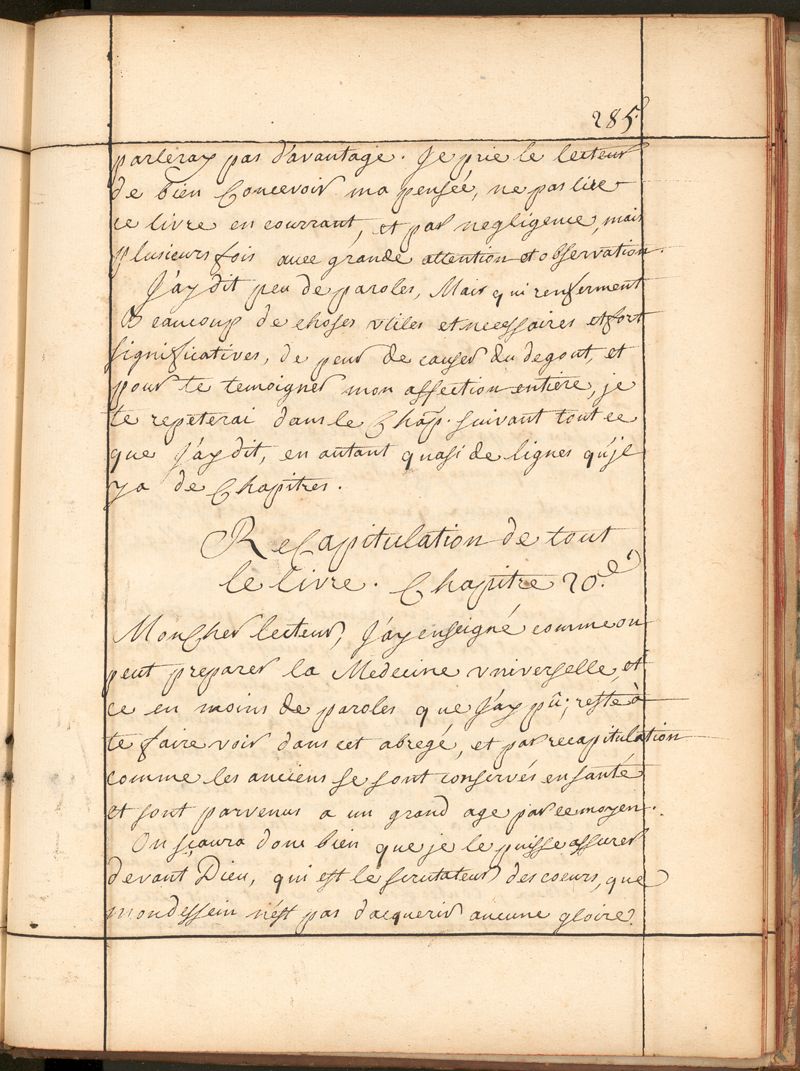 285.
parleray pas d'avantage. Je prie le lecteur
de bien Concevoir ma pensée, ne pas lire
ce livre en courrant, et par negligence, mais
plusieurs fois avec grande attention et observation.
J'ay dit peu de paroles, Mais qui renferment
Beaucoup de choses utiles et necessaires et fort
significatives, de peur de causer du degout, et
pour te temoigner mon affection entiere, je
te repeterai dans le Chap. suivant tout ce
que j'ay dit, en autant quasi de lignes qu'jl
ya de Chapitres.
ReCapitulation de tout
le livre. Chapitre 20.e
Mon Cher lecteur, J'ay enseigné comme on
peut preparer la Medecine vniverselle, et
ce en moins de paroles que j'ay pû; reste à
te faire voir dans cet abregé, et par recapitulation
comme les anciens se sont conservés en santé
et sont parvenus a un grand age par ce moyen.
On sçaura donc bien que je le puisse assurer
devant Dieu, qui est le scrutateur des coeurs, que
mon dessein n'est pas d'acquerir aucune gloire